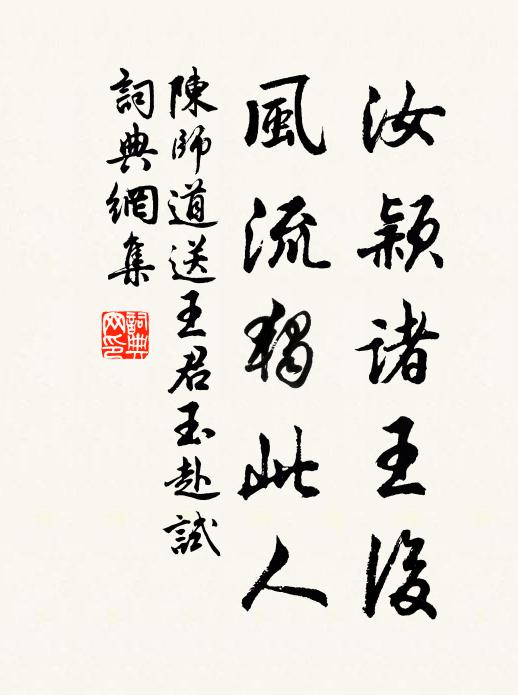 汝潁諸王後
風流獨此人
陳師道送王君玉赴試
詞典網集
詞典网印